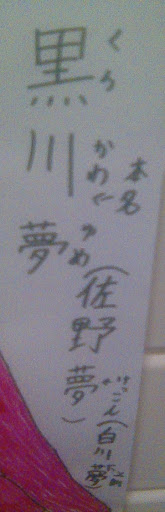 黒川夢
くろ
かわ
ゆめ
本名
(佐野夢)
けっこん(白川夢